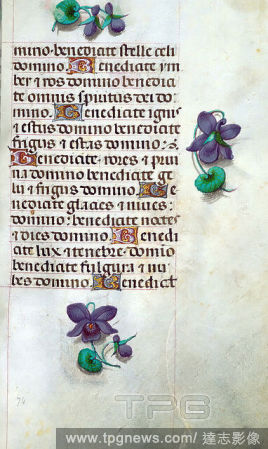 mino. benedicite stelle celi
domino. Benedicite ym
ber et ros domino benedici
te omnis spiritus dei do
mino. Benedicite ignis
et estus domino benedicite
frigus et estas domino. 
Benedicite rores et prui
na domino benedicite ge
lu et frigus domino. Be
nedicite glacies et nives
domino. benedicite noctes
et dies domino. Benedi
cite lux et tenebre domino
benedicite fulgura et nu
bes domino. Benedicat
74
TPG
www.tpgnews.com/ 達志影像